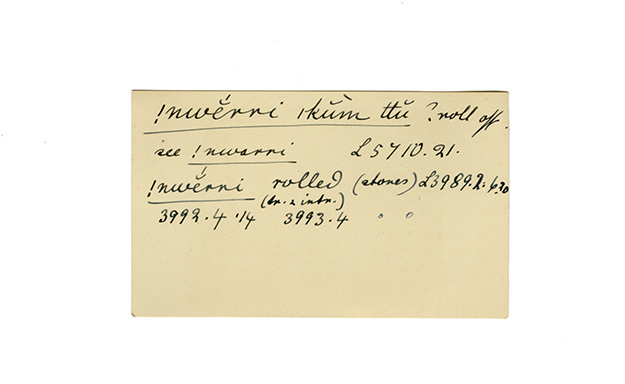 !nwérri ǀkŭm ttŭ ? roll off.
see !nwarri L5710.21.
!nwérri rolled (stones) L3989.2.6.20
(tr. & intr.)
3992.4.14 3993.4 " "